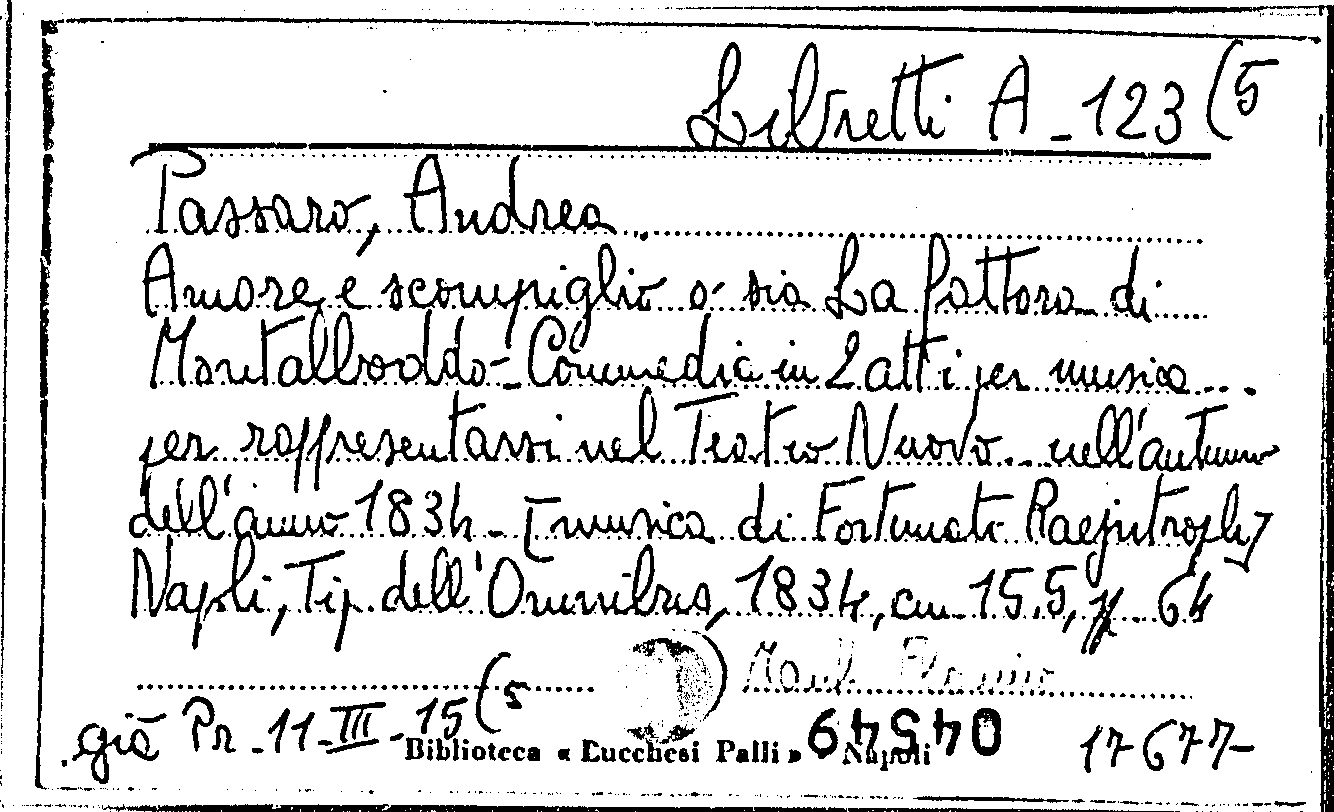 Libretti A - 123 (5
Passaro, Andrea
Amore e scompiglio o sia La fattora di
Montalboddo - Commedia in 2 atti per musica...
per rappresentarsi nel Teatro Nuovo... nell'autunno
dell'anno 1834 - [musica di Fortunati Raejntroph]
Napoli, Tip. dell'Omnibus, 1834, cm. 15.5, pp. 64
già Pr. - 11 - III - 15 (5
Biblioteca « Lucchesi Palli » Napoli
045549
17677-